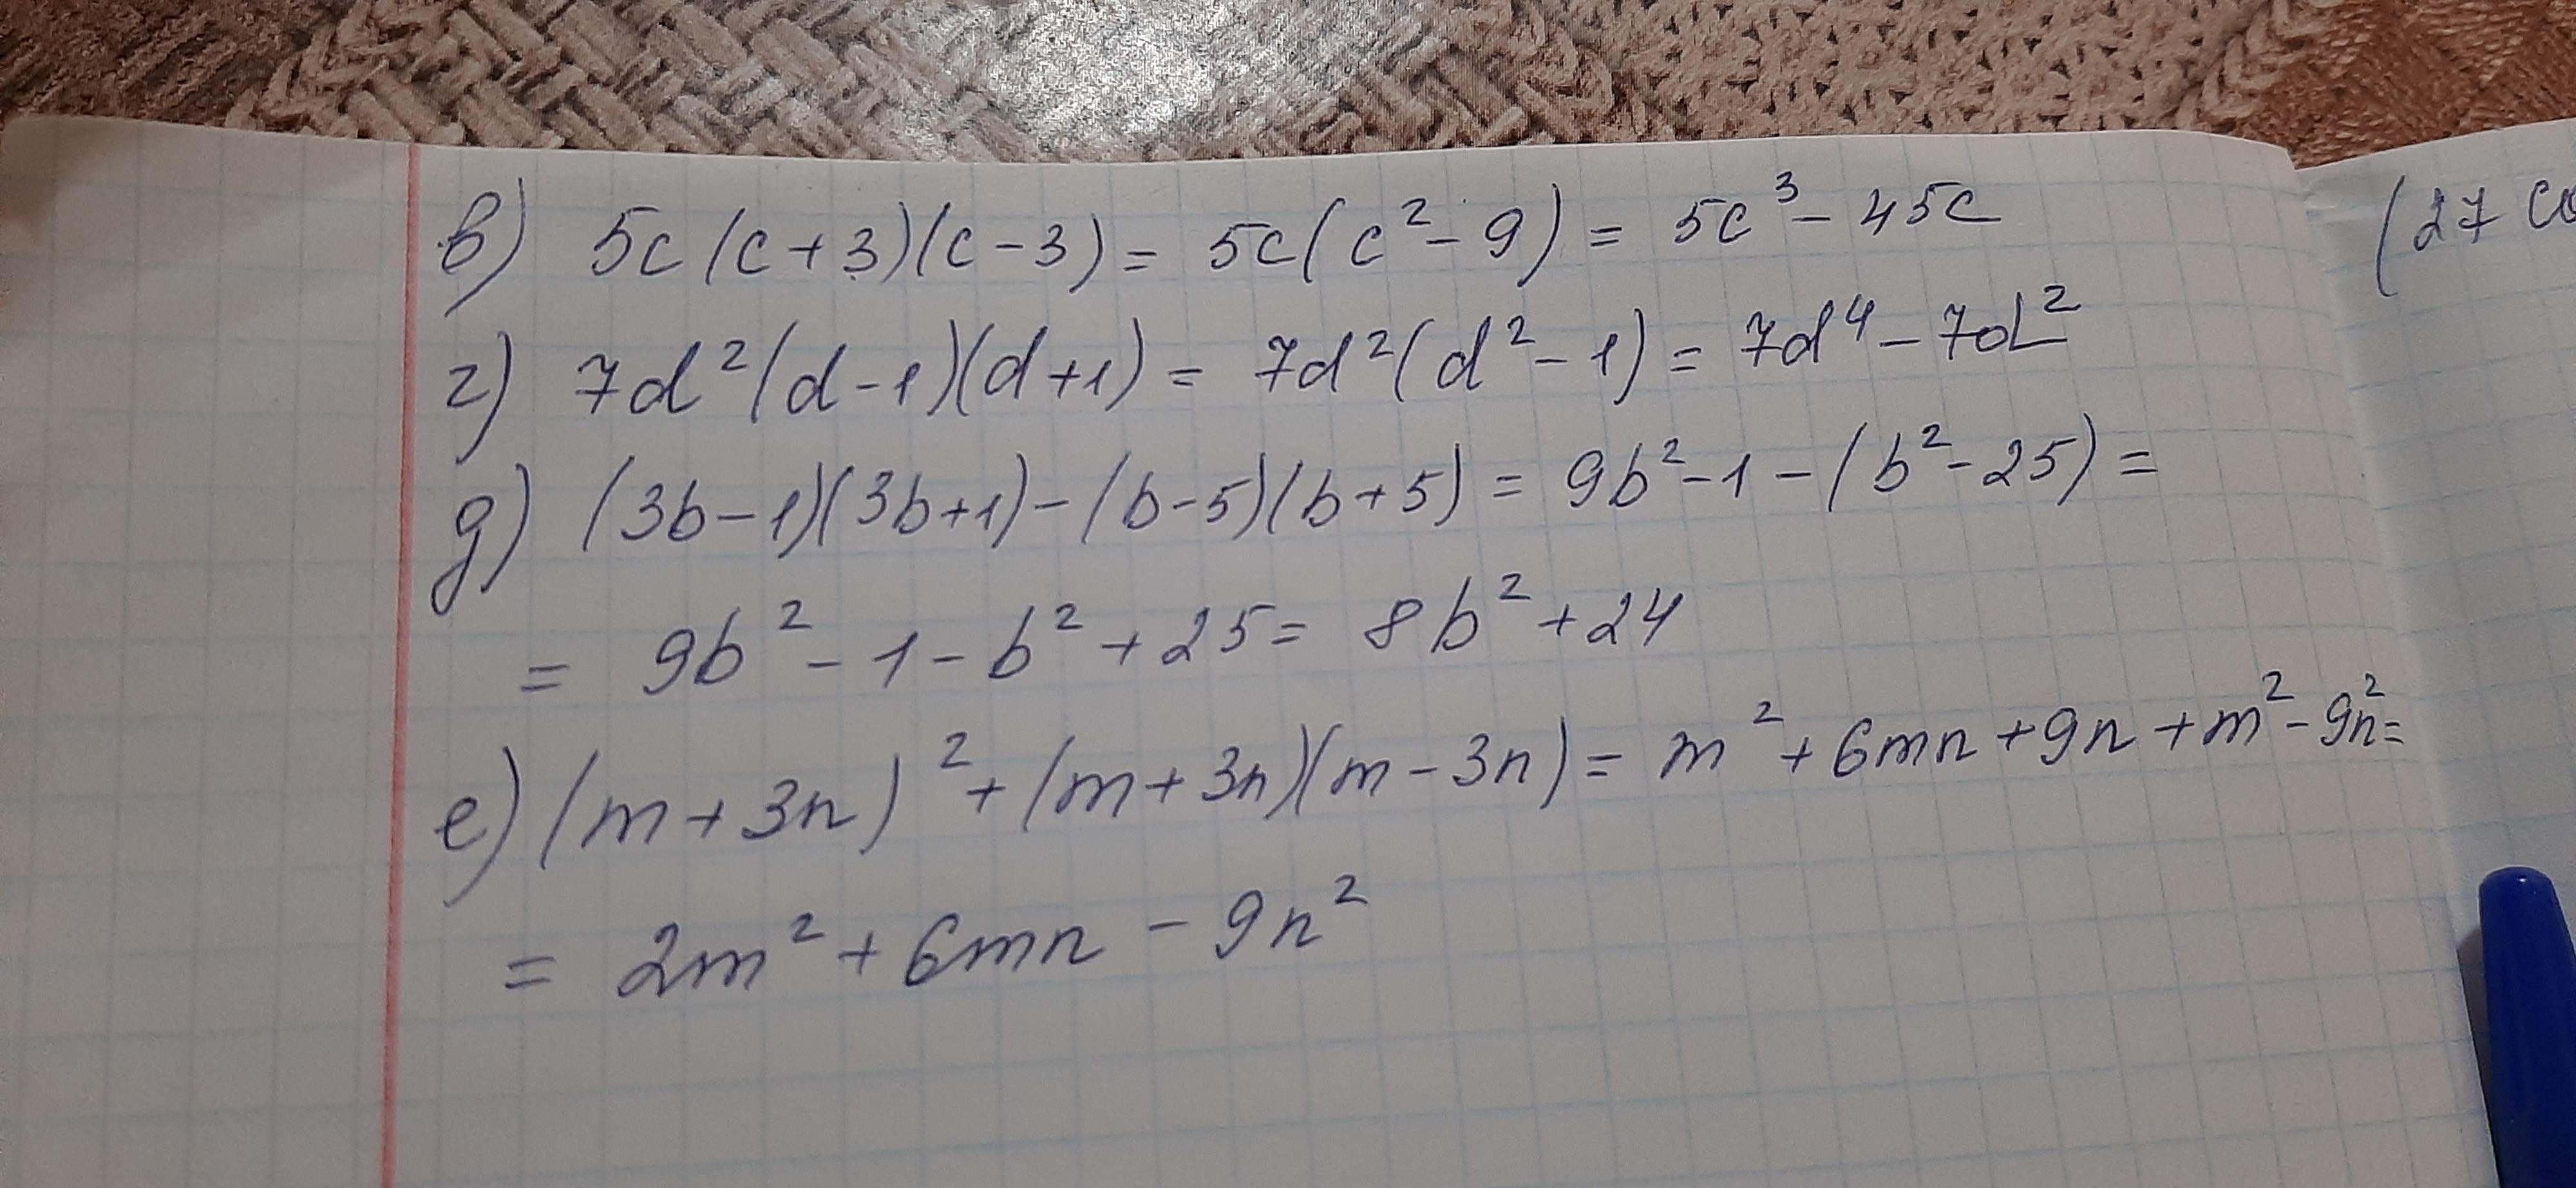 в) 5c(c+3)(c-3) = 5c(c²-9) = 5c³-45c
(27
г) 7d²(d-1)(d+1) = 7d²(d²-1) = 7d⁴-7d²
д) (3b-1)(3b+1)-(b-5)(b+5) = 9b²-1-(b²-25) =
= 9b²-1-b²+25 = 8b²+24
е) (m+3n)²+(m+3n)(m-3n) = m²+6mn+9n+m²-9n²=
= 2m²+6mn-9n²